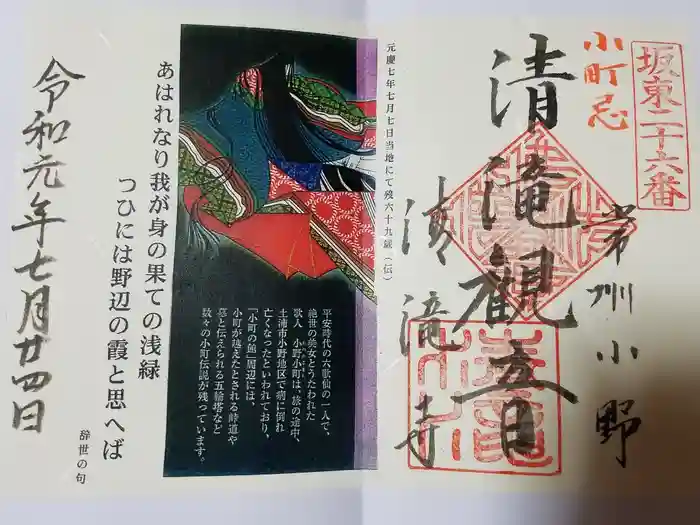 坂東二十六番
小町忌
常州小野
清滝観音
清滝寺
元慶七年七月七日当地にて残六十九歳（伝）
平安時代の六歌仙の一人で、
絶世の美女とうたわれた
歌人　小野小町は、旅の途中、
土浦市小野地区で病に倒れ
亡くなったといわれており、
「小町の館」周辺には、
小町が越えたとされる峠道や
墓と伝えられる五輪塔など
数々の小町伝説が残っています。
あはれなり我が身の果ての浅緑
つひには野辺の霞と思へば
辞世の句
令和元年七月廿四日